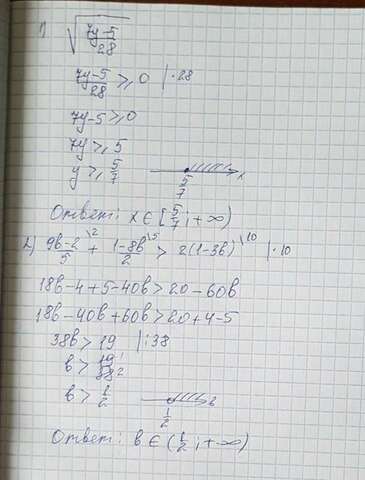 1) √((7y-5)/28)
(7y-5)/28 ⩾ 0 | ·28
7y-5 ⩾ 0
7y ⩾ 5
y ⩾ 5/7
x
5/7
Ответ: x ∈ [5/7; +∞)
2) (9b-2)/5 \2 + (1-8b)/2 \5 > 2(1-3b) \10 | ·10
18b-4+5-40b > 20-60b
18b-40b+60b > 20+4-5
38b > 19 | :38
b > 19/38 1 2
b > 1/2
b
1/2
Ответ: b ∈ (1/2; +∞)